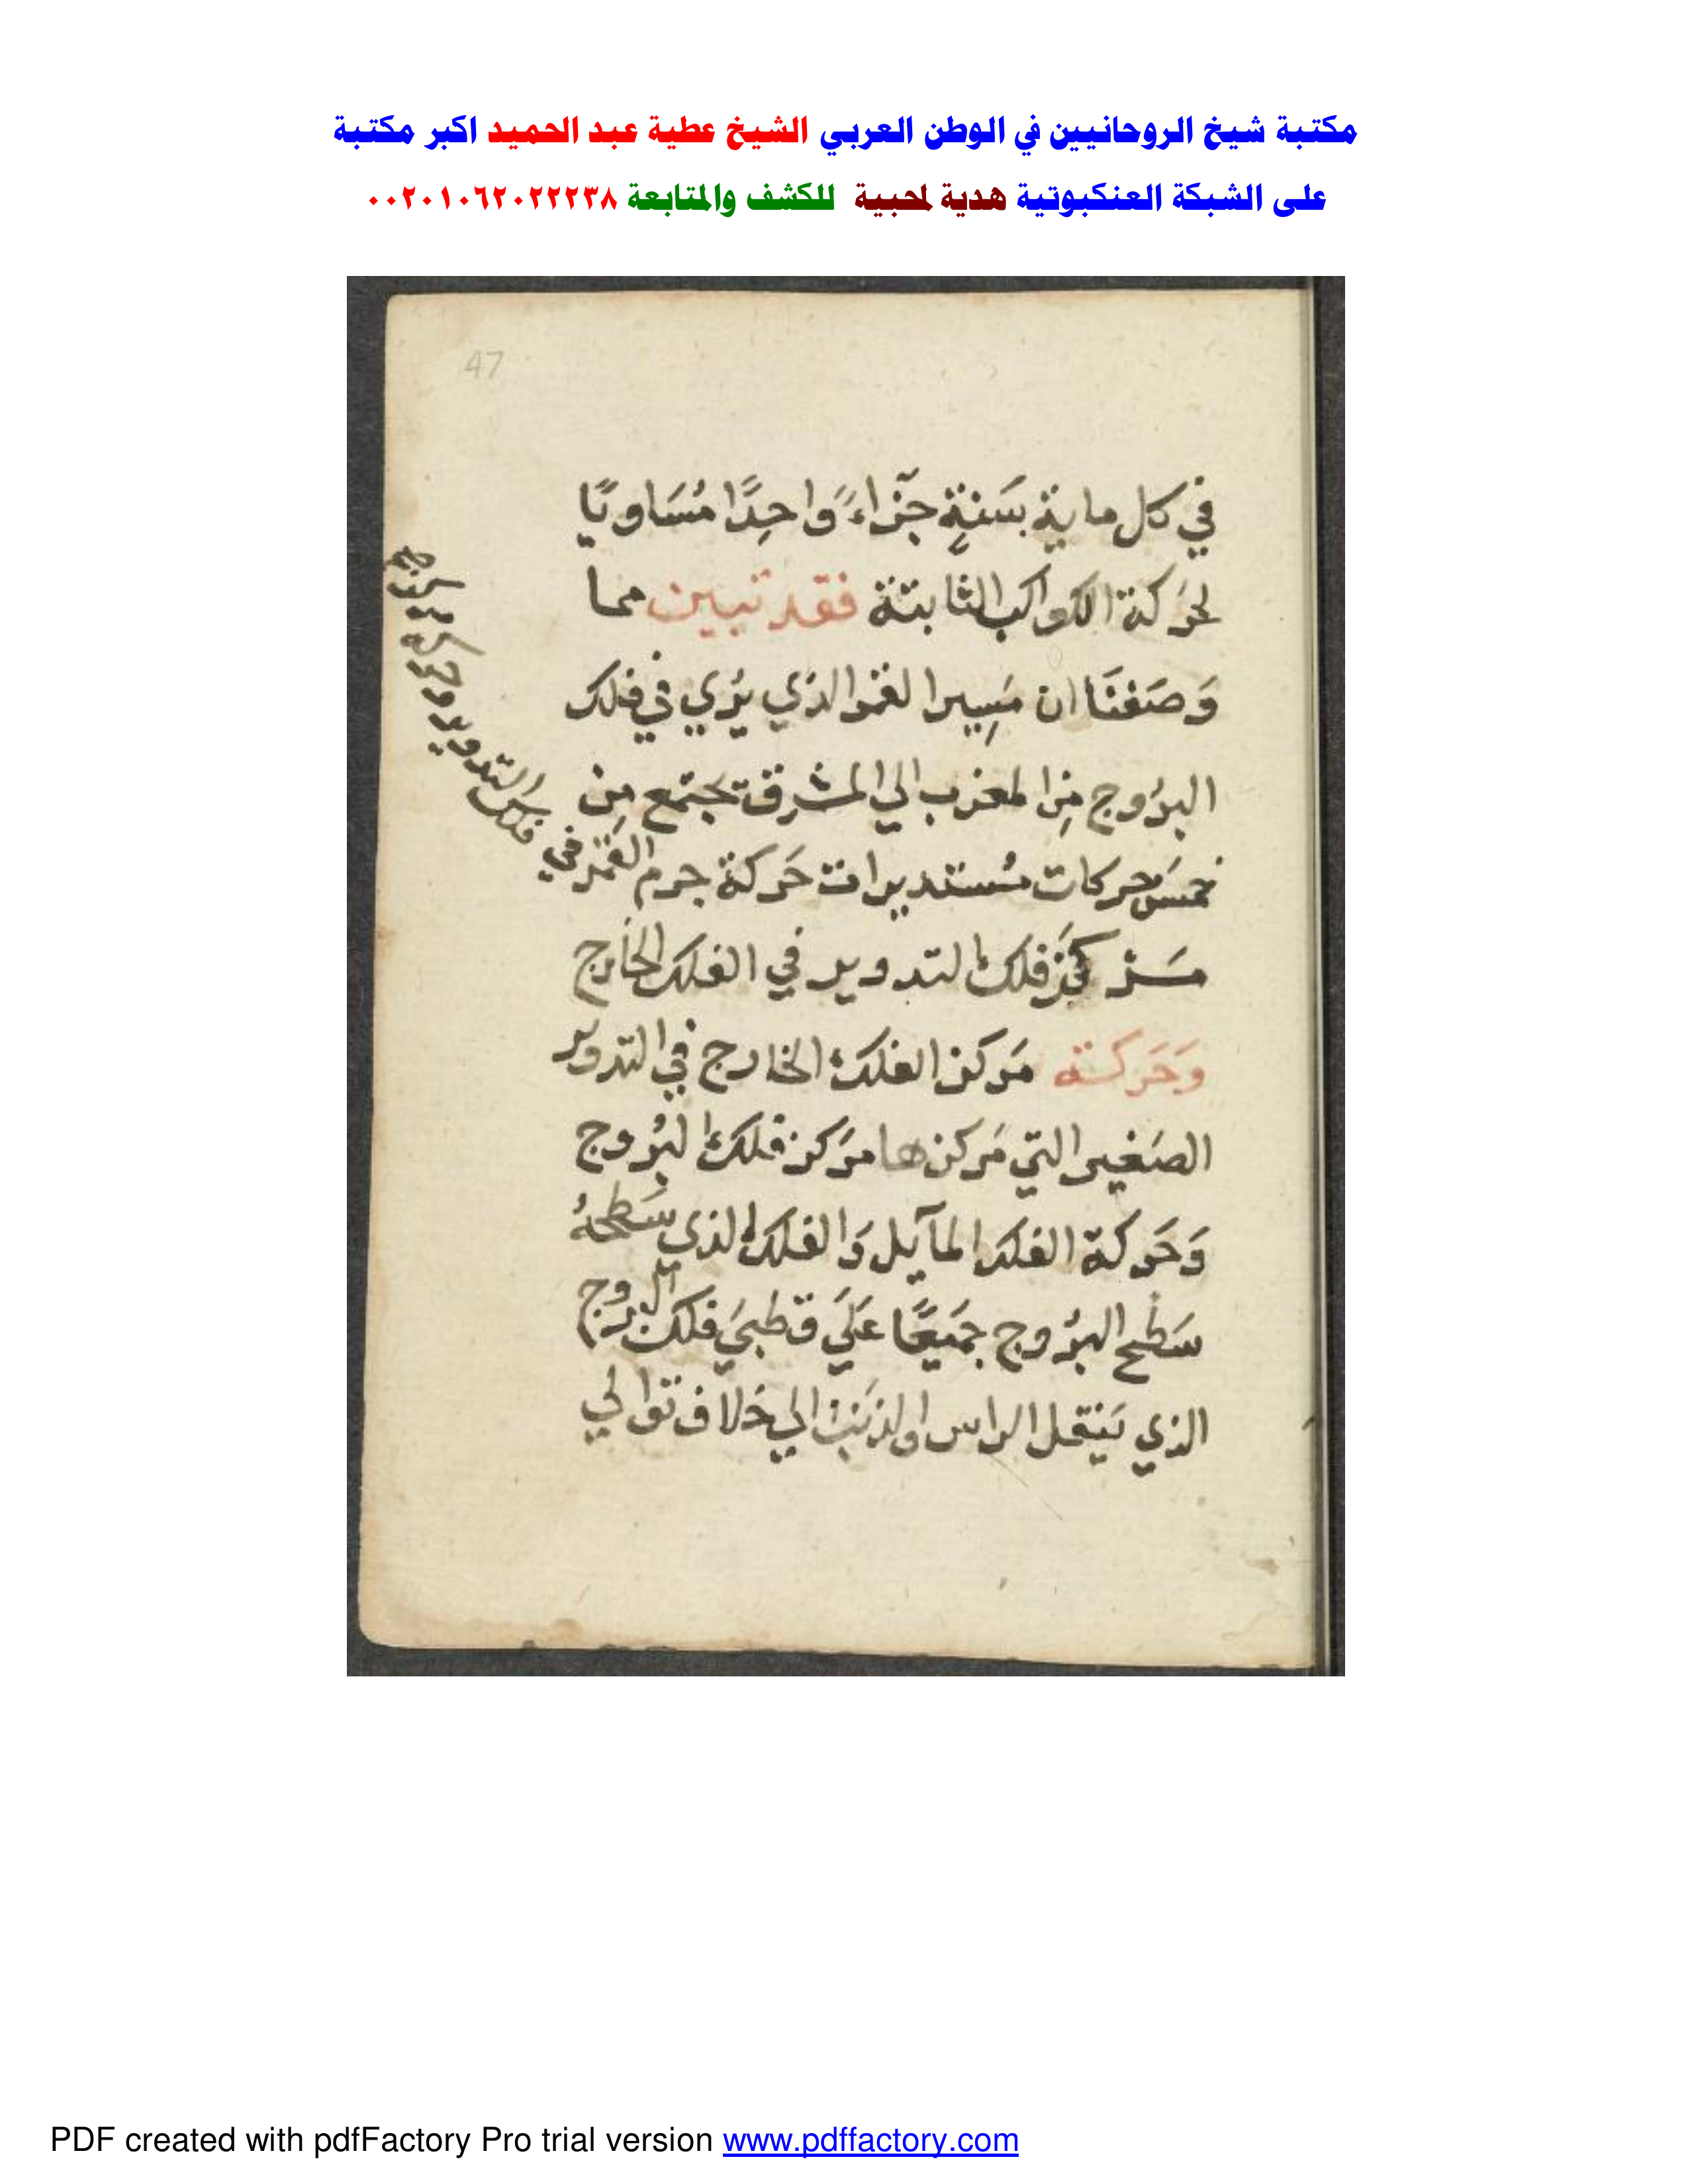 مكتبة شيخ الروحانيين في الوطن العربي الشيخ عطية عبد الحميد اكبر مكتبة
على الشبكة العنكبوتية هدية لمحبية للكشف والمتابعة ٠٠٢٠١٠٦٢٠٢٢٢٣٨
47
في كل ماية سَنةٍ جزاءً وَاحِدًا مُسَاويًا
لحَركة الكواكب الثابتة فقد تبين مما
وَصَفنَا ان مَسِير القمر الذي يُري في فلك
البرُوج مِن المغرب الي المشرق تجتمع مِن
خمسَ حركات مُستديرات حَركة جرم القمَر في فلك التدوير وحركة
مركز فلك التدوير في الفلك الخارج
وَحَركة مَركز الفلك الخارج في التدوير
الصَغير التي مَركزها مَركز فلك البرُوج
وَحَركة الفلك المآيل وَالفلك الذي سَطحهُ
سَطح البرُوج جَميعًا عَلَي قطبَي فلك البروج
الذي يَنقل الراس او الذنَب الي خلاف توالي
PDF created with pdfFactory Pro trial version www.pdffactory.com